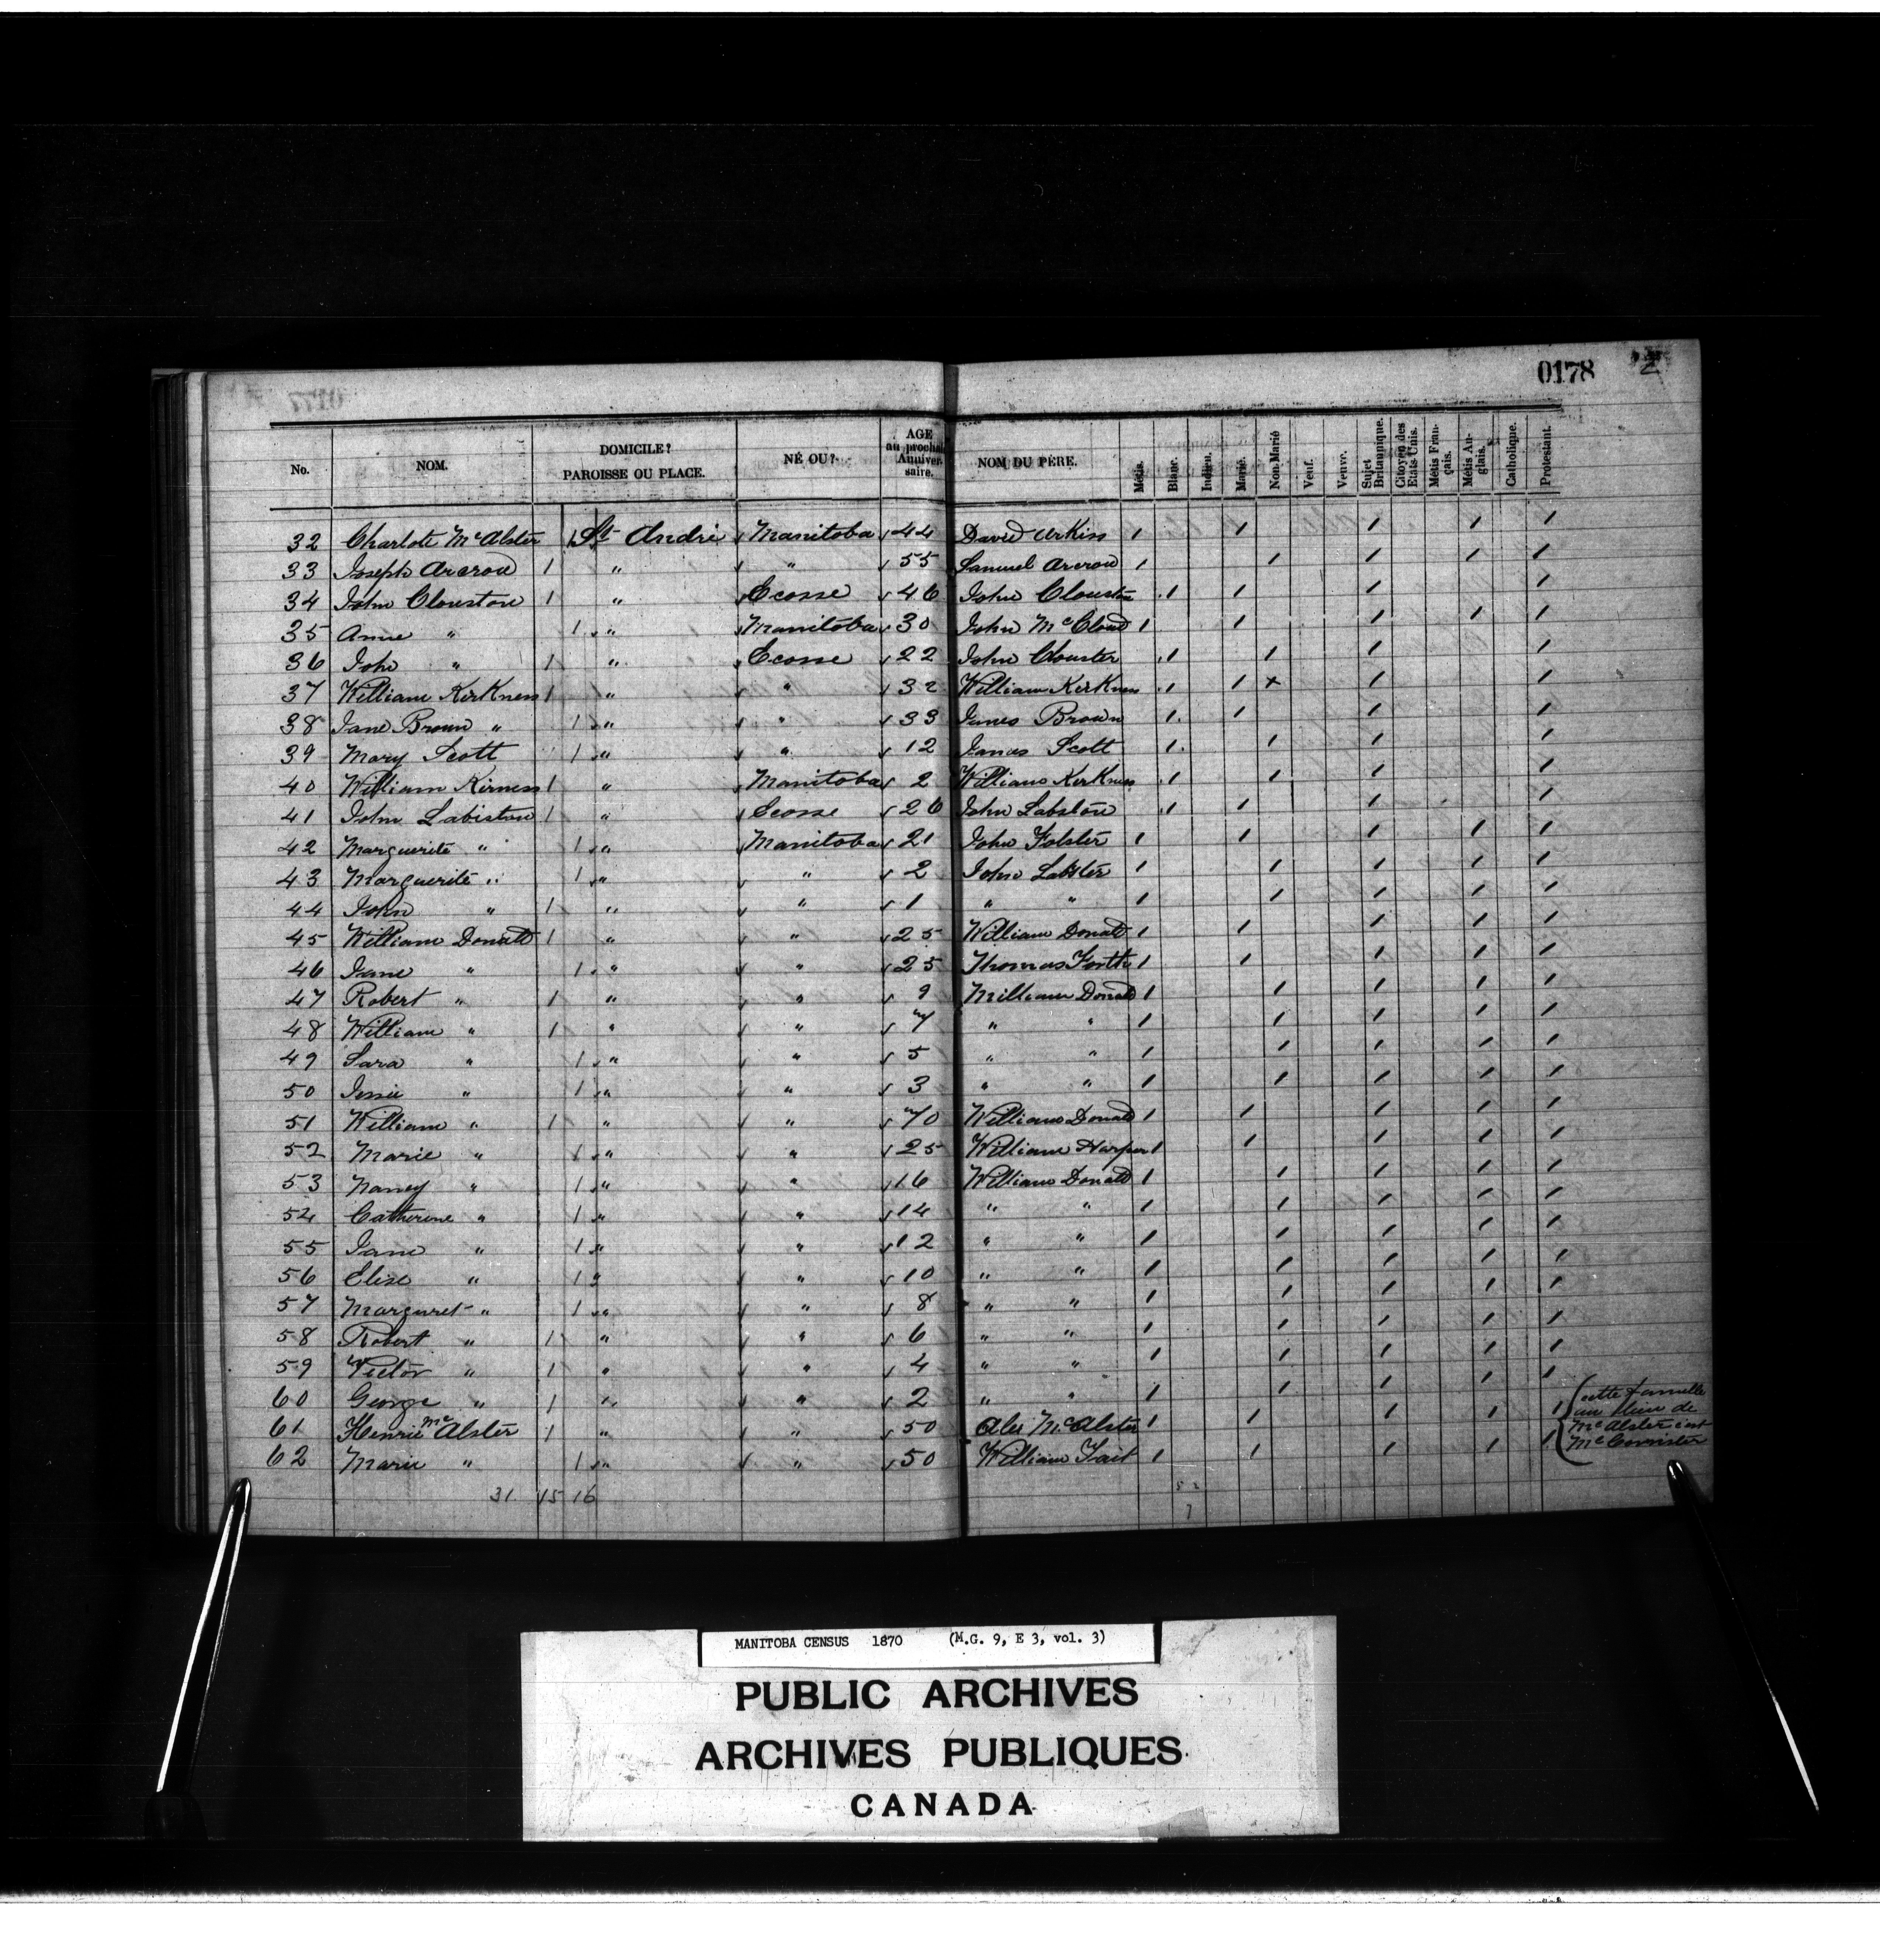 0178 2
No. NOM. DOMICILE? PAROISSE OU PLACE. NÉ OU? AGE au prochain Anniver-saire. NOM DU PÈRE. Métis. Blanc. Indien. Marié. Non-Marié Veuf. Veuve. Sujet Britannique. Citoyen des Etats Unis. Métis Fran-çais. Métis An-glais. Catholique. Protestant.
32 Charlote McAlster 1 St André Manitoba 44 David Arkiss 1 1 1 1 1
33 Joseph Arcrow 1 " " 55 Samuel Arcrow 1 1 1 1 1
34 John Clouston 1 " Ecosse 46 John Clouston 1 1 1 1
35 Anne " 1 " Manitoba 30 John McCloud 1 1 1 1 1
36 John " 1 " Ecosse 22 John Clouster 1 1 1 1
37 William KirKness 1 " " 32 William KirKness 1 1 x 1 1
38 Jane Brown " 1 " " 33 James Brown 1 1 1 1
39 Mary Scott 1 " " 12 James Scott 1 1 1 1
40 William Kirness 1 " Manitoba 2 William KirKness 1 1 1 1
41 John Labiston 1 " Ecosse 26 John Labston 1 1 1 1
42 Marguerite " 1 " Manitoba 21 John Folster 1 1 1 1 1
43 Marguerite " 1 " " 2 John Labster 1 1 1 1 1
44 John " 1 " " 1 " " 1 1 1 1 1
45 William Donald 1 " " 25 William Donald 1 1 1 1 1
46 Jane " 1 " " 25 Thomas Forth 1 1 1 1 1
47 Robert " 1 " " 9 William Donald 1 1 1 1 1
48 William " 1 " " 7 " " 1 1 1 1 1
49 Sara " 1 " " 5 " " 1 1 1 1 1
50 Jessie " 1 " " 3 " " 1 1 1 1 1
51 William " 1 " " 70 William Donald 1 1 1 1 1
52 Marie " 1 " " 25 William Harper 1 1 1 1 1
53 Nancy " 1 " " 16 William Donald 1 1 1 1 1
54 Catherine " 1 " " 14 " " 1 1 1 1 1
55 Jane " 1 " " 12 " " 1 1 1 1 1
56 Elise " 1 " " 10 " " 1 1 1 1 1
57 Margaret " 1 " " 8 " " 1 1 1 1 1
58 Robert " 1 " " 6 " " 1 1 1 1 1
59 Victor " 1 " " 4 " " 1 1 1 1 1
60 George " 1 " " 2 " " 1 1 1 1 1
61 Henrie McAlster 1 " " 50 Alex McAlster 1 1 1 1 1
62 Marie " 1 " " 50 William Tait 1 1 1 1 1
cette famille
au lieu de
McAlster c'est
McCorrister
31 15 16
MANITOBA CENSUS 1870 (M.G. 9, E 3, vol. 3)
PUBLIC ARCHIVES
ARCHIVES PUBLIQUES
CANADA